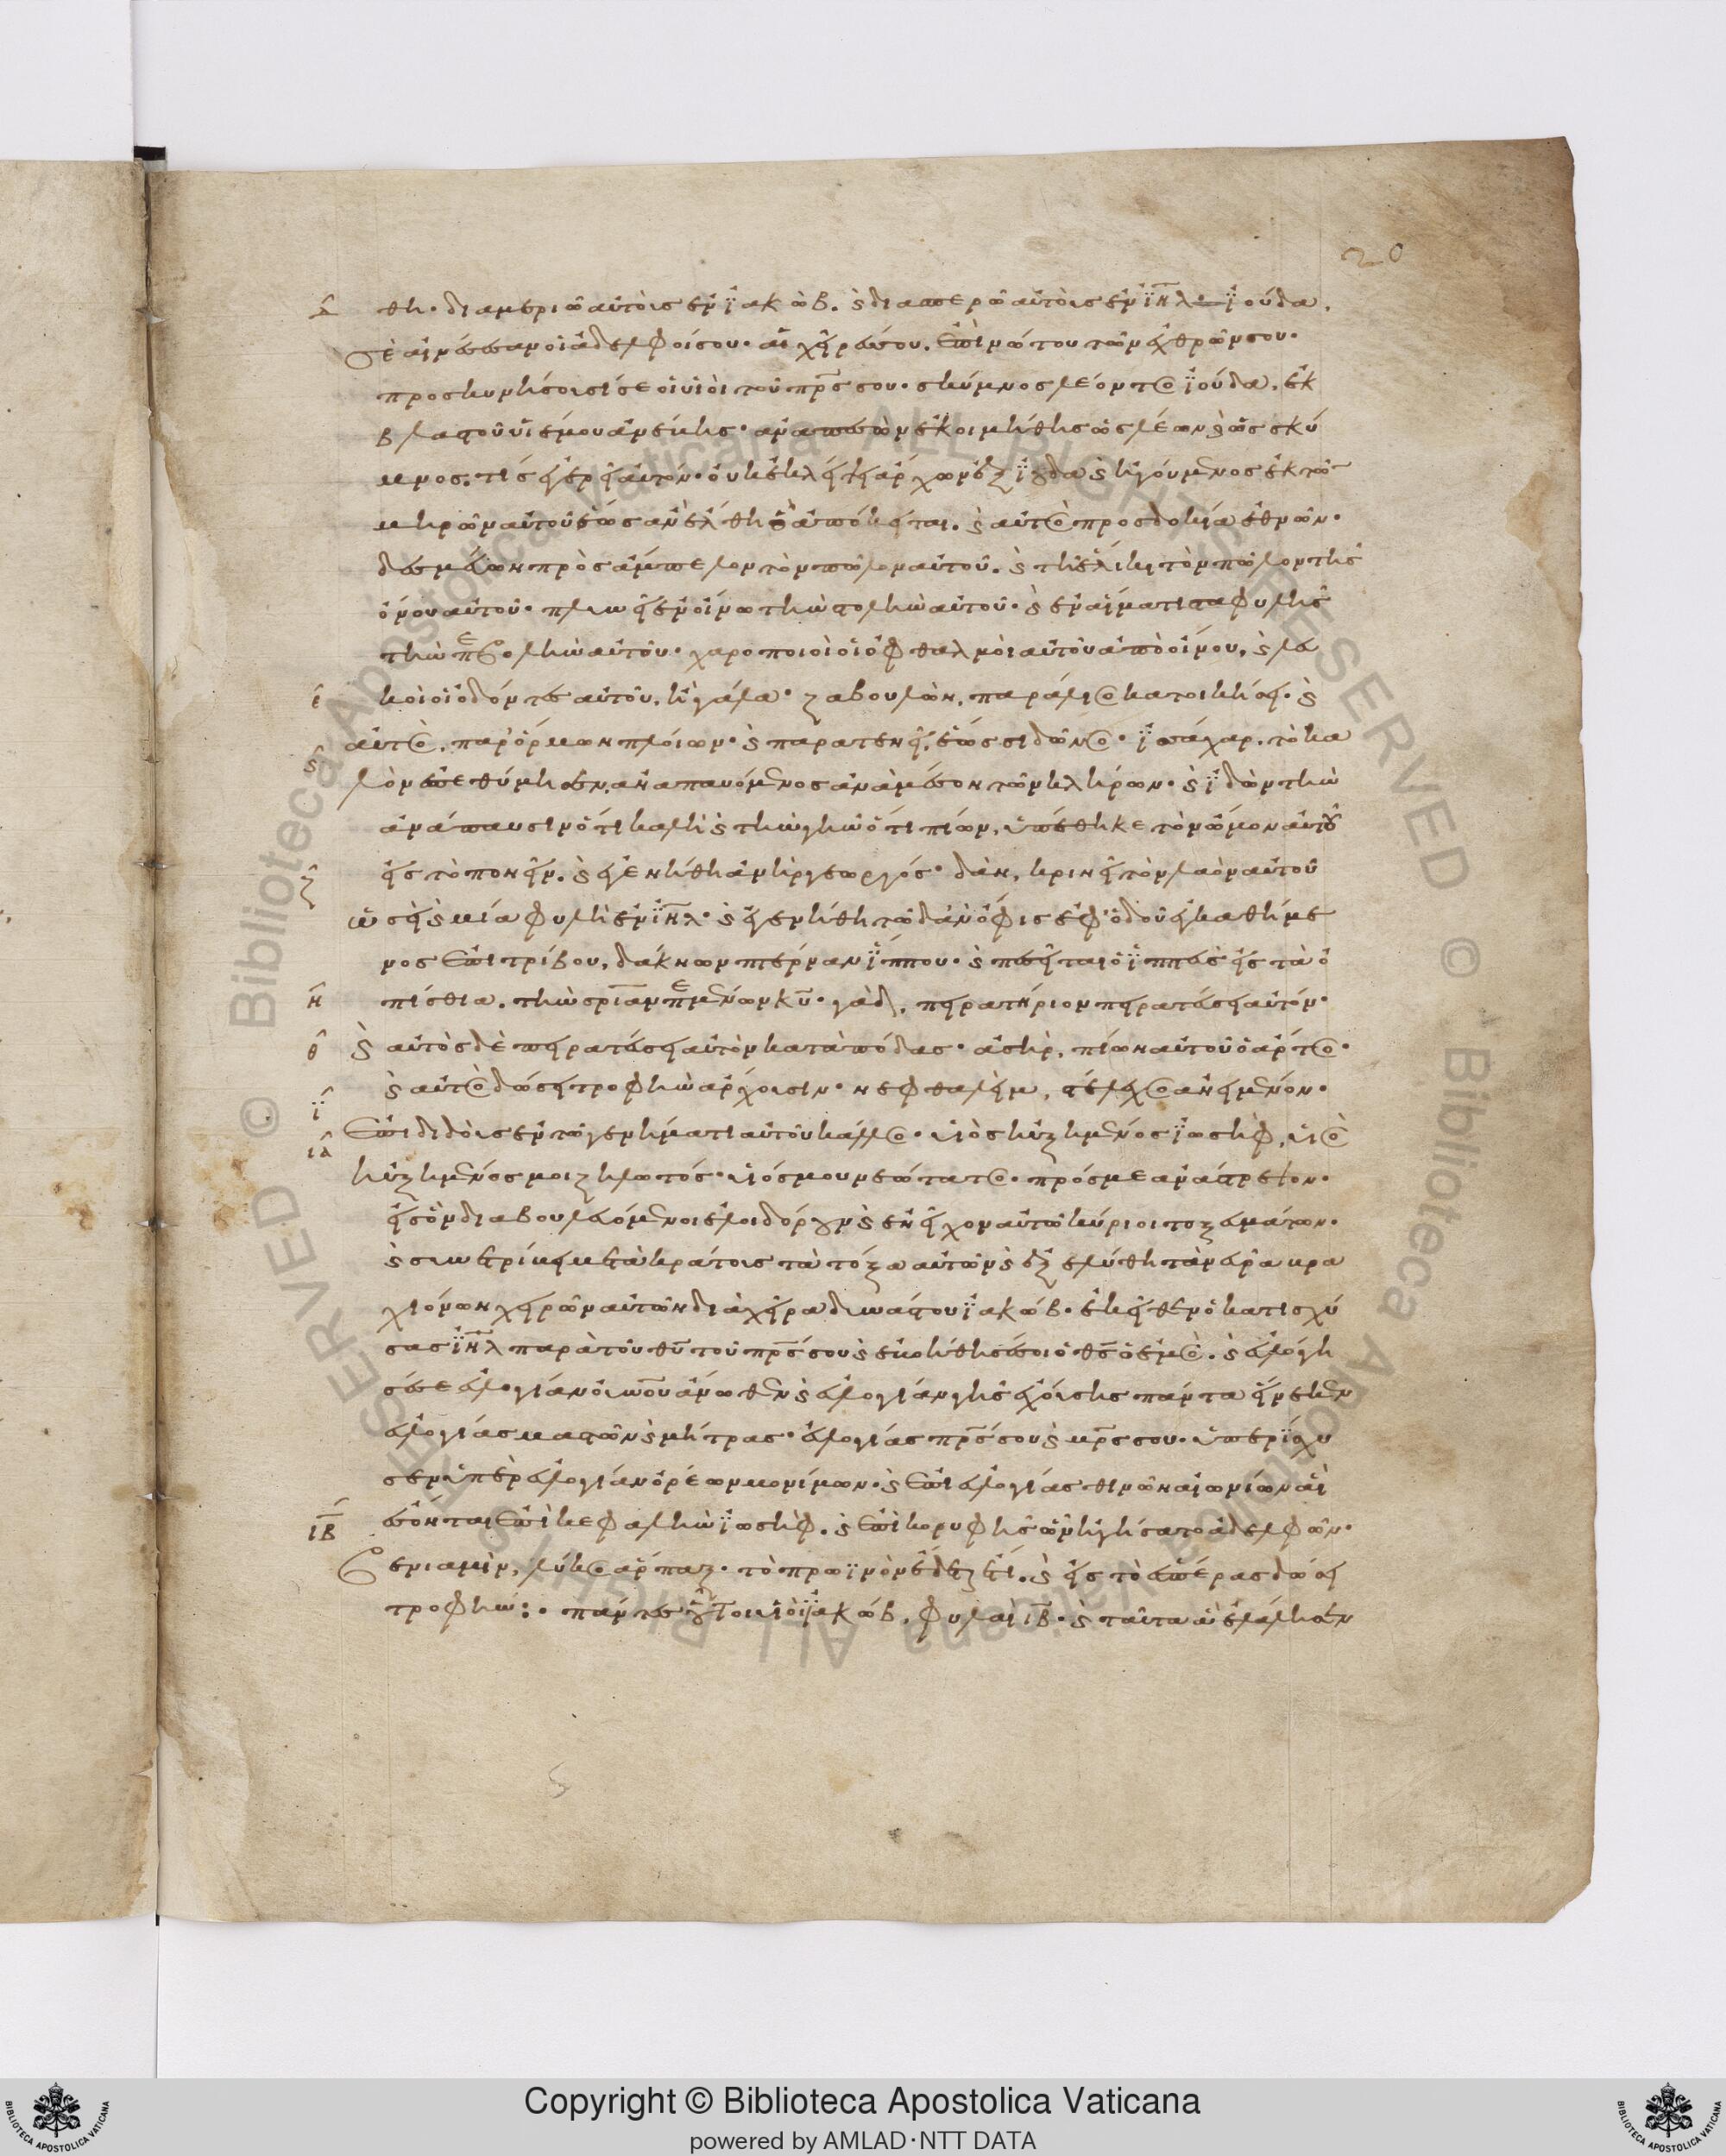 20
δ θη· διαμεριῶ αὐτοὺς ἐν ἰακὼβ. ϗ διασπερῶ αὐτοὺς ἐν ιηλ· ἰούδα,
σὲ αἰνέσαισαν οἱ ἀδελφοί σου· αἱ χεῖρές σου ἐπὶ νώτου τῶν ἐχθρῶν σου·
προσκυνήσουσί σε οἱ υἱοὶ τοῦ πρς σου· σκύμνος λέοντος ἰούδα. ἐκ
βλαστοῦ υἱέ μου ἀνέβης· ἀναπεσὼν ἐκοιμήθης ὡς λέων ϗ ὡς σκύ
μνος· τίς ἐγερεῖ αὐτόν· οὐκ ἐκλείψει ἄρχων ἐξ ἰούδα ϗ ἡγούμενος ἐκ τῶν
μηρῶν αὐτοῦ ἕως ἂν ἔλθη ὃ ἀπόκειται. ϗ αὐτὸς προσδοκία ἐθνῶν·
δεσμεύων πρὸς ἄμπελον τὸν πῶλον αὐτοῦ. ϗ τῆ ἕλικι τὸν πῶλον τῆς
ὄνου αὐτοῦ· πλυνεῖ ἐν οἴνω τὴν στολὴν αὐτοῦ· ϗ ἐν αἵματι σταφυλῆς
τὴν περιβολὴν αὐτοῦ· χαροποιοὶ οἱ ὀφθαλμοὶ αὐτοῦ ἀπὸ οἴνου, ϗ λευ
ε κοὶ οἱ ὀδόντες αὐτοῦ, ἢ γάλα· ζαβουλὼν, παράλιος κατοικήσει· ϗ
αὐτὸς, παρ' ὅρμον πλοίων· ϗ παρατενεῖ, ἕως σιδῶνος· ἰσάχαρ, τὸ κα
ϛ λὸν ἐπεθύμησεν, ἀναπαυόμενος ἀνὰ μέσον τῶν κλήρων· ϗ ἰδὼν τὴν
ἀνάπαυσιν ὅτι καλὴ ϗ τὴν γῆν ὅτι πίων, ὑπέθηκε τὸν ὦμον αὐτοῦ
ζ εἰς τὸ πονεῖν. ϗ ἐγενήθη ἀνὴρ γεωργός· δὰν, κρινεῖ τὸν λαὸν αὐτοῦ
ὡσεὶ ϗ μία φυλὴ ἐν ιηλ· ϗ ἐγενήθη τῶ δὰν ὄφις ἐφ' ὁδοῦ ἐγκαθήμε
νος ἐπὶ τρίβου, δάκνων πτέρναν ἵππου· ϗ πεσεῖται ὁ ἱππεὺς εἰς τὰ ὀ
η πίσθια. τὴν σριαν περιμένων κυ· γὰδ, πειρατήριον πειρατεύσει αὐτόν·
θ ϗ αὐτὸς δὲ πειρατεύσει αὐτὸν κατὰ πόδας· ἀσὴρ, πίων αὐτοῦ ὁ ἄρτος·
ϗ αὐτὸς δώσει τροφὴν ἄρχουσιν· νεφθαλεὶμ, στέλεχος ἀνειμένον·
ι ἐπιδιδοὺς ἐν τῶ γενήματι αὐτοῦ κάλλος· υἱὸς ηὐξημένος ἰωσὴφ, υἱὸς
ια ηὐξημένος μοι ζηλωτός· υἱός μου νεώτατος· πρός με ἀνάστρεψον·
εἰς ὃν διαβουλευόμενοι ἐλοιδόρουν ϗ ἐνεῖχον αὐτῶ κύριοι τοξευμάτων·
ϗ συνετρίβη μετὰ κράτους τὰ τόξα αὐτῶν ϗ ἐξελύθη τὰ νεῦρα βρα
χιόνων χειρῶν αὐτῶν διὰ χεῖρα δυνάστου ἰακώβ· ἐκεῖθεν ὁ κατισχύ
σας ιηλ παρὰ τοῦ θυ τοῦ πρς σου ϗ ἐβοήθησέ σοι ὁ θς ὁ ἐμὸς. ϗ εὐλόγη
σέ σε εὐλογίαν οὐνου ἄνωθεν ϗ εὐλογίαν γῆς ἐχούσης πάντα εἵνεκεν
εὐλογίας μαστῶν ϗ μήτρας· εὐλογίας πρς σου ϗ μρς σου· ὑπερίσχυ
σεν ὑπὲρ εὐλογίαν ὀρέων μονίμων· ϗ ἐπὶ εὐλογίας θινῶν αἰωνίων αἳ
ιβ ἔσονται ἐπὶ κεφαλὴν ἰωσὴφ. ϗ ἐπὶ κορυφῆς ὧν ἡγήσατο ἀδελφῶν·
βενιαμὶν, λύκος ἅρπαξ· τὸ πρωϊνὸν ἔδεται ἔτι. ϗ εἰς τὸ ἑσπέρας δώσει
τροφὴν:· πάντες οὗτοι υἱοὶ ἰακώβ, φυλαὶ ιβ· ϗ ταῦτα ἃ ἐλάλησεν
Copyright © Biblioteca Apostolica Vaticana
powered by AMLAD·NTT DATA